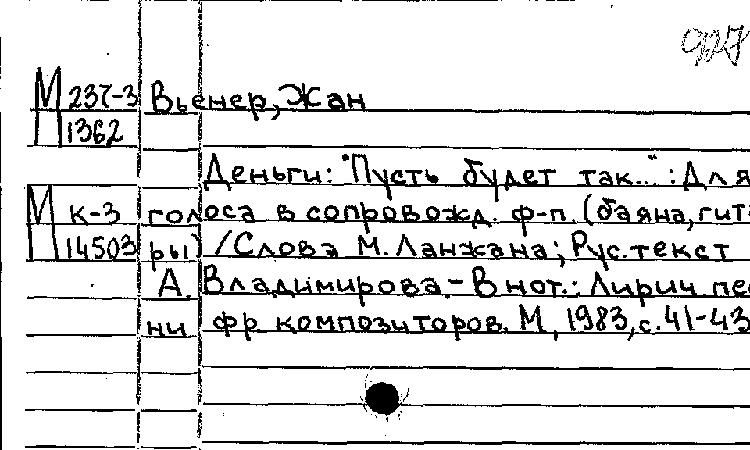 М 237-3 Вьенер, Жан
П 1362
Деньги: "Пусть будет так..." : Для
М к-3 голоса в сопровожд. ф-п. (баяна, гита
П 14503 ры) / Слова М. Ланжана; Рус. текст
А. Владимирова. - В нот.: Лирич пес
ни фр композиторов. М, 1983, с. 41-43